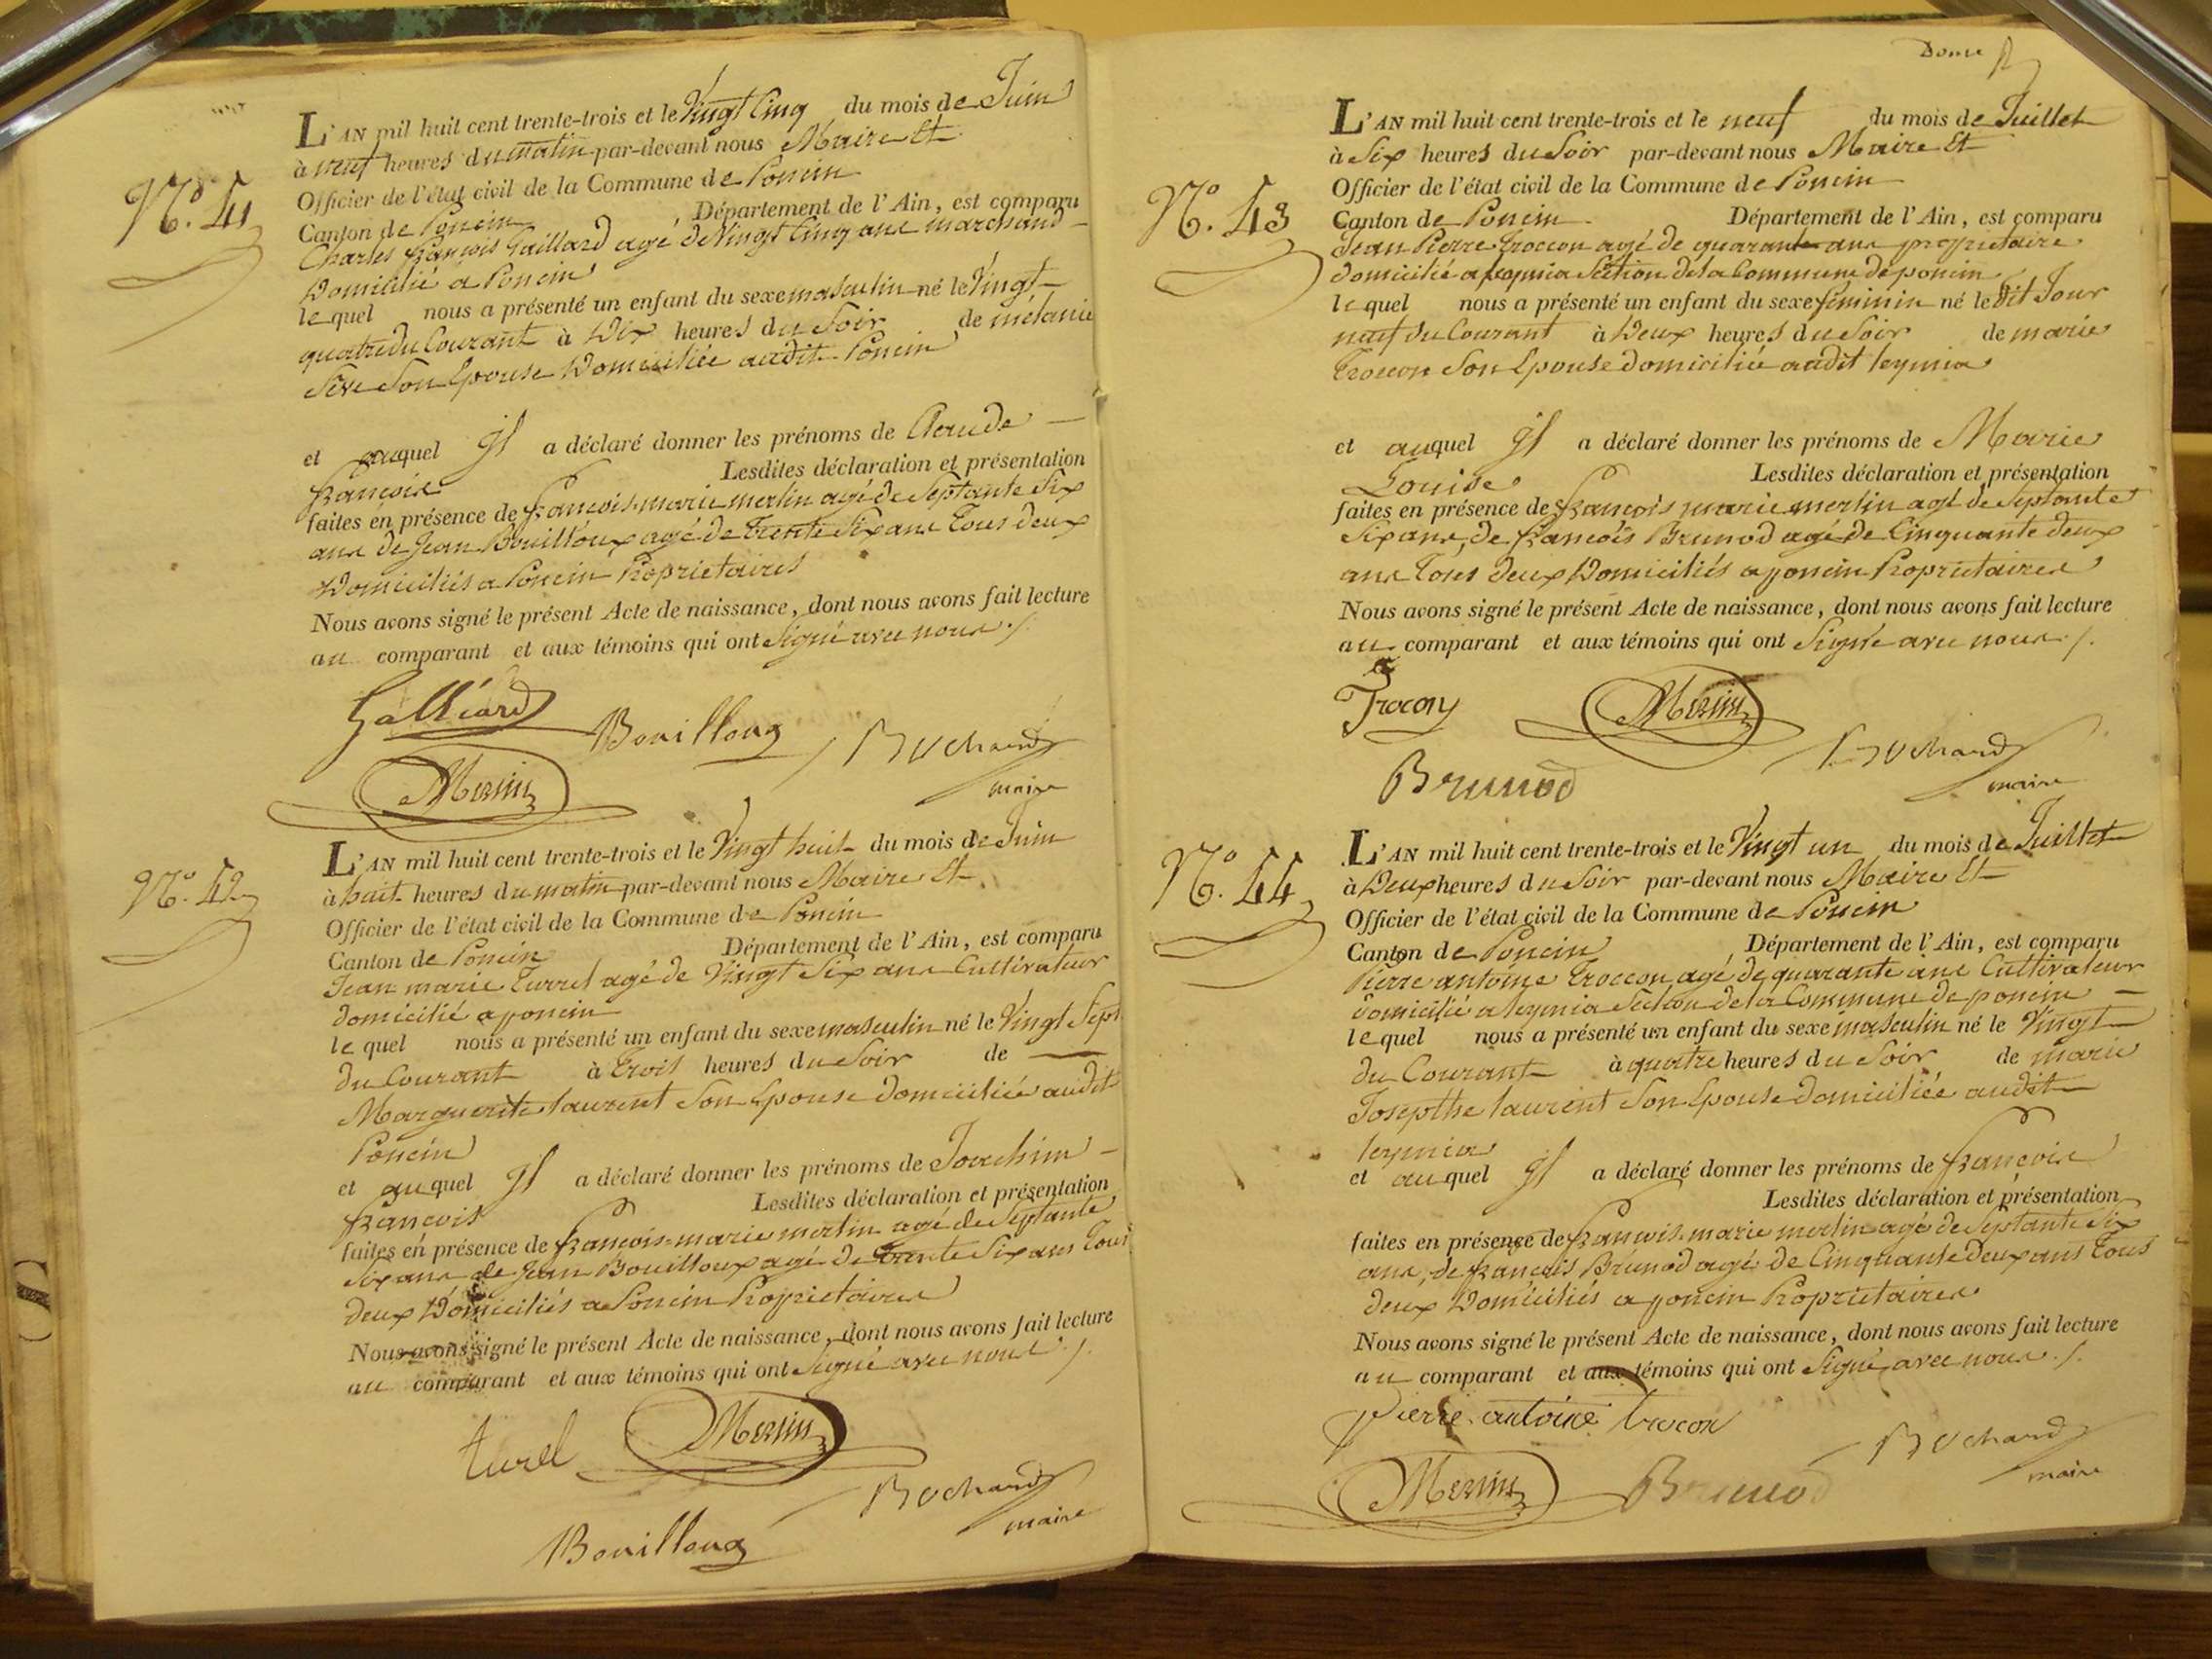 L'AN mil huit cent trente-trois et le Vingt Cinq du mois de Juin
à neuf heures du matin par-devant nous Maire Et
Officier de l'état civil de la Commune de Poncin
N.º 41
Canton de Poncin Département de l'Ain, est comparu
Charles françois Gaillard agé de Vingt Cinq ans marchand
Domicilié à Poncin
lequel nous a présenté un enfant du sexe masculin né le Vingt
quatre du Courant à Dix heures du Soir de mélanie
Son Epouse Domiciliée audit Poncin
et auquel Il a déclaré donner les prénoms de Claude
françois Lesdites déclaration et présentation
faites en présence de françois-marie merlin agé de Septante Six
ans de Jean Bouilloux agé de Trente Six ans Tous deux
Domiciliés a Poncin Propriétaires
Nous avons signé le présent Acte de naissance, dont nous avons fait lecture
au comparant et aux témoins qui ont Signé avec nous ./.
Galliard
Bouilloux
Bochard
Merlin
maire
L'AN mil huit cent trente-trois et le Vingt huit du mois de Juin
à huit heures du matin par-devant nous Maire Et
N.º 42
Officier de l'état civil de la Commune de Poncin
Canton de Poncin Département de l'Ain, est comparu
Jean marie Turrel agé de Vingt Six ans Cultivateur
domicilié a poncin
lequel nous a présenté un enfant du sexe masculin né le Vingt Sept
du Courant à Trois heures du Soir de
Marguerite laurent Son Epouse domiciliée audit
Poncin
et auquel Il a déclaré donner les prénoms de Joachim
françois Lesdites déclaration et présentation
faites en présence de françois-marie merlin agé de Septante
Six ans de Jean Bouilloux agé de trente Six ans Tous
deux Domiciliés a Poncin Propriétaires
Nous avons signé le présent Acte de naissance, dont nous avons fait lecture
au comparant et aux témoins qui ont Signé avec nous ./.
turel
Merlin
Bochard
maire
Bouilloux
L'AN mil huit cent trente-trois et le neuf du mois de Juillet
à Six heures du Soir par-devant nous Maire Et
Officier de l'état civil de la Commune de Poncin
N.º 43
Canton de Poncin Département de l'Ain, est comparu
Jean Pierre Troccon agé de quarante ans propriétaire
domicilié a leymia Section de la Commune de poncin
lequel nous a présenté un enfant du sexe féminin né le dit Jour
neuf du Courant à Deux heures du Soir de marie
Troccon Son Epouse domiciliée audit leymia
et auquel Il a déclaré donner les prénoms de Marie
Louise Lesdites déclaration et présentation
faites en présence de françois marie merlin agé de Septante
Six ans, de françois Brunod agé de Cinquante deux
ans Tous deux Domiciliés a poncin Propriétaires
Nous avons signé le présent Acte de naissance, dont nous avons fait lecture
au comparant et aux témoins qui ont Signé avec nous ./.
Trocon
Merlin
Bochard
Brunod
maire
L'AN mil huit cent trente-trois et le Vingt un du mois de Juillet
à Deux heures du Soir par-devant nous Maire Et
N.º 44
Officier de l'état civil de la Commune de Poncin
Canton de Poncin Département de l'Ain, est comparu
Pierre antoine Troccon agé de quarante ans Cultivateur
domicilié a leymia Section de la Commune de poncin
lequel nous a présenté un enfant du sexe masculin né le Vingt
du Courant à quatre heures du Soir de marie
Josepthe laurent Son Epouse domiciliée audit
leymia
et auquel Il a déclaré donner les prénoms de françois
Lesdites déclaration et présentation
faites en présence de françois-marie merlin agé de Septante Six
ans, de françois Brunod agé de Cinquante deux ans Tous
deux Domiciliés a poncin Propriétaires
Nous avons signé le présent Acte de naissance, dont nous avons fait lecture
au comparant et aux témoins qui ont Signé avec nous ./.
pierre antoine trocon
Bochard
Merlin
Brunod
maire